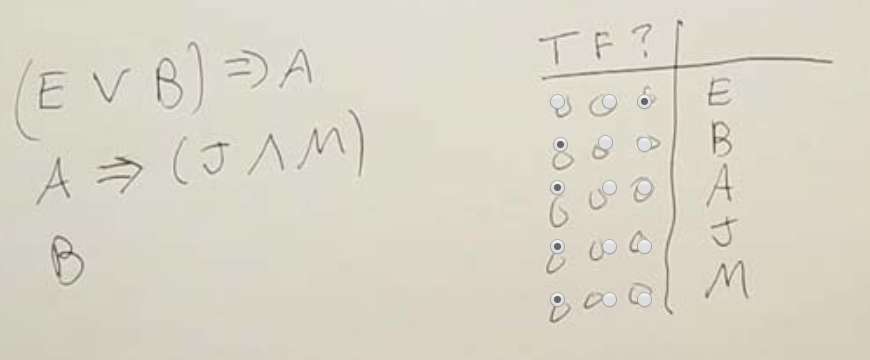 (E ∨ B) ⇒ A
A ⇒ (J ∧ M)
B
T F ?
E
B
A
J
M